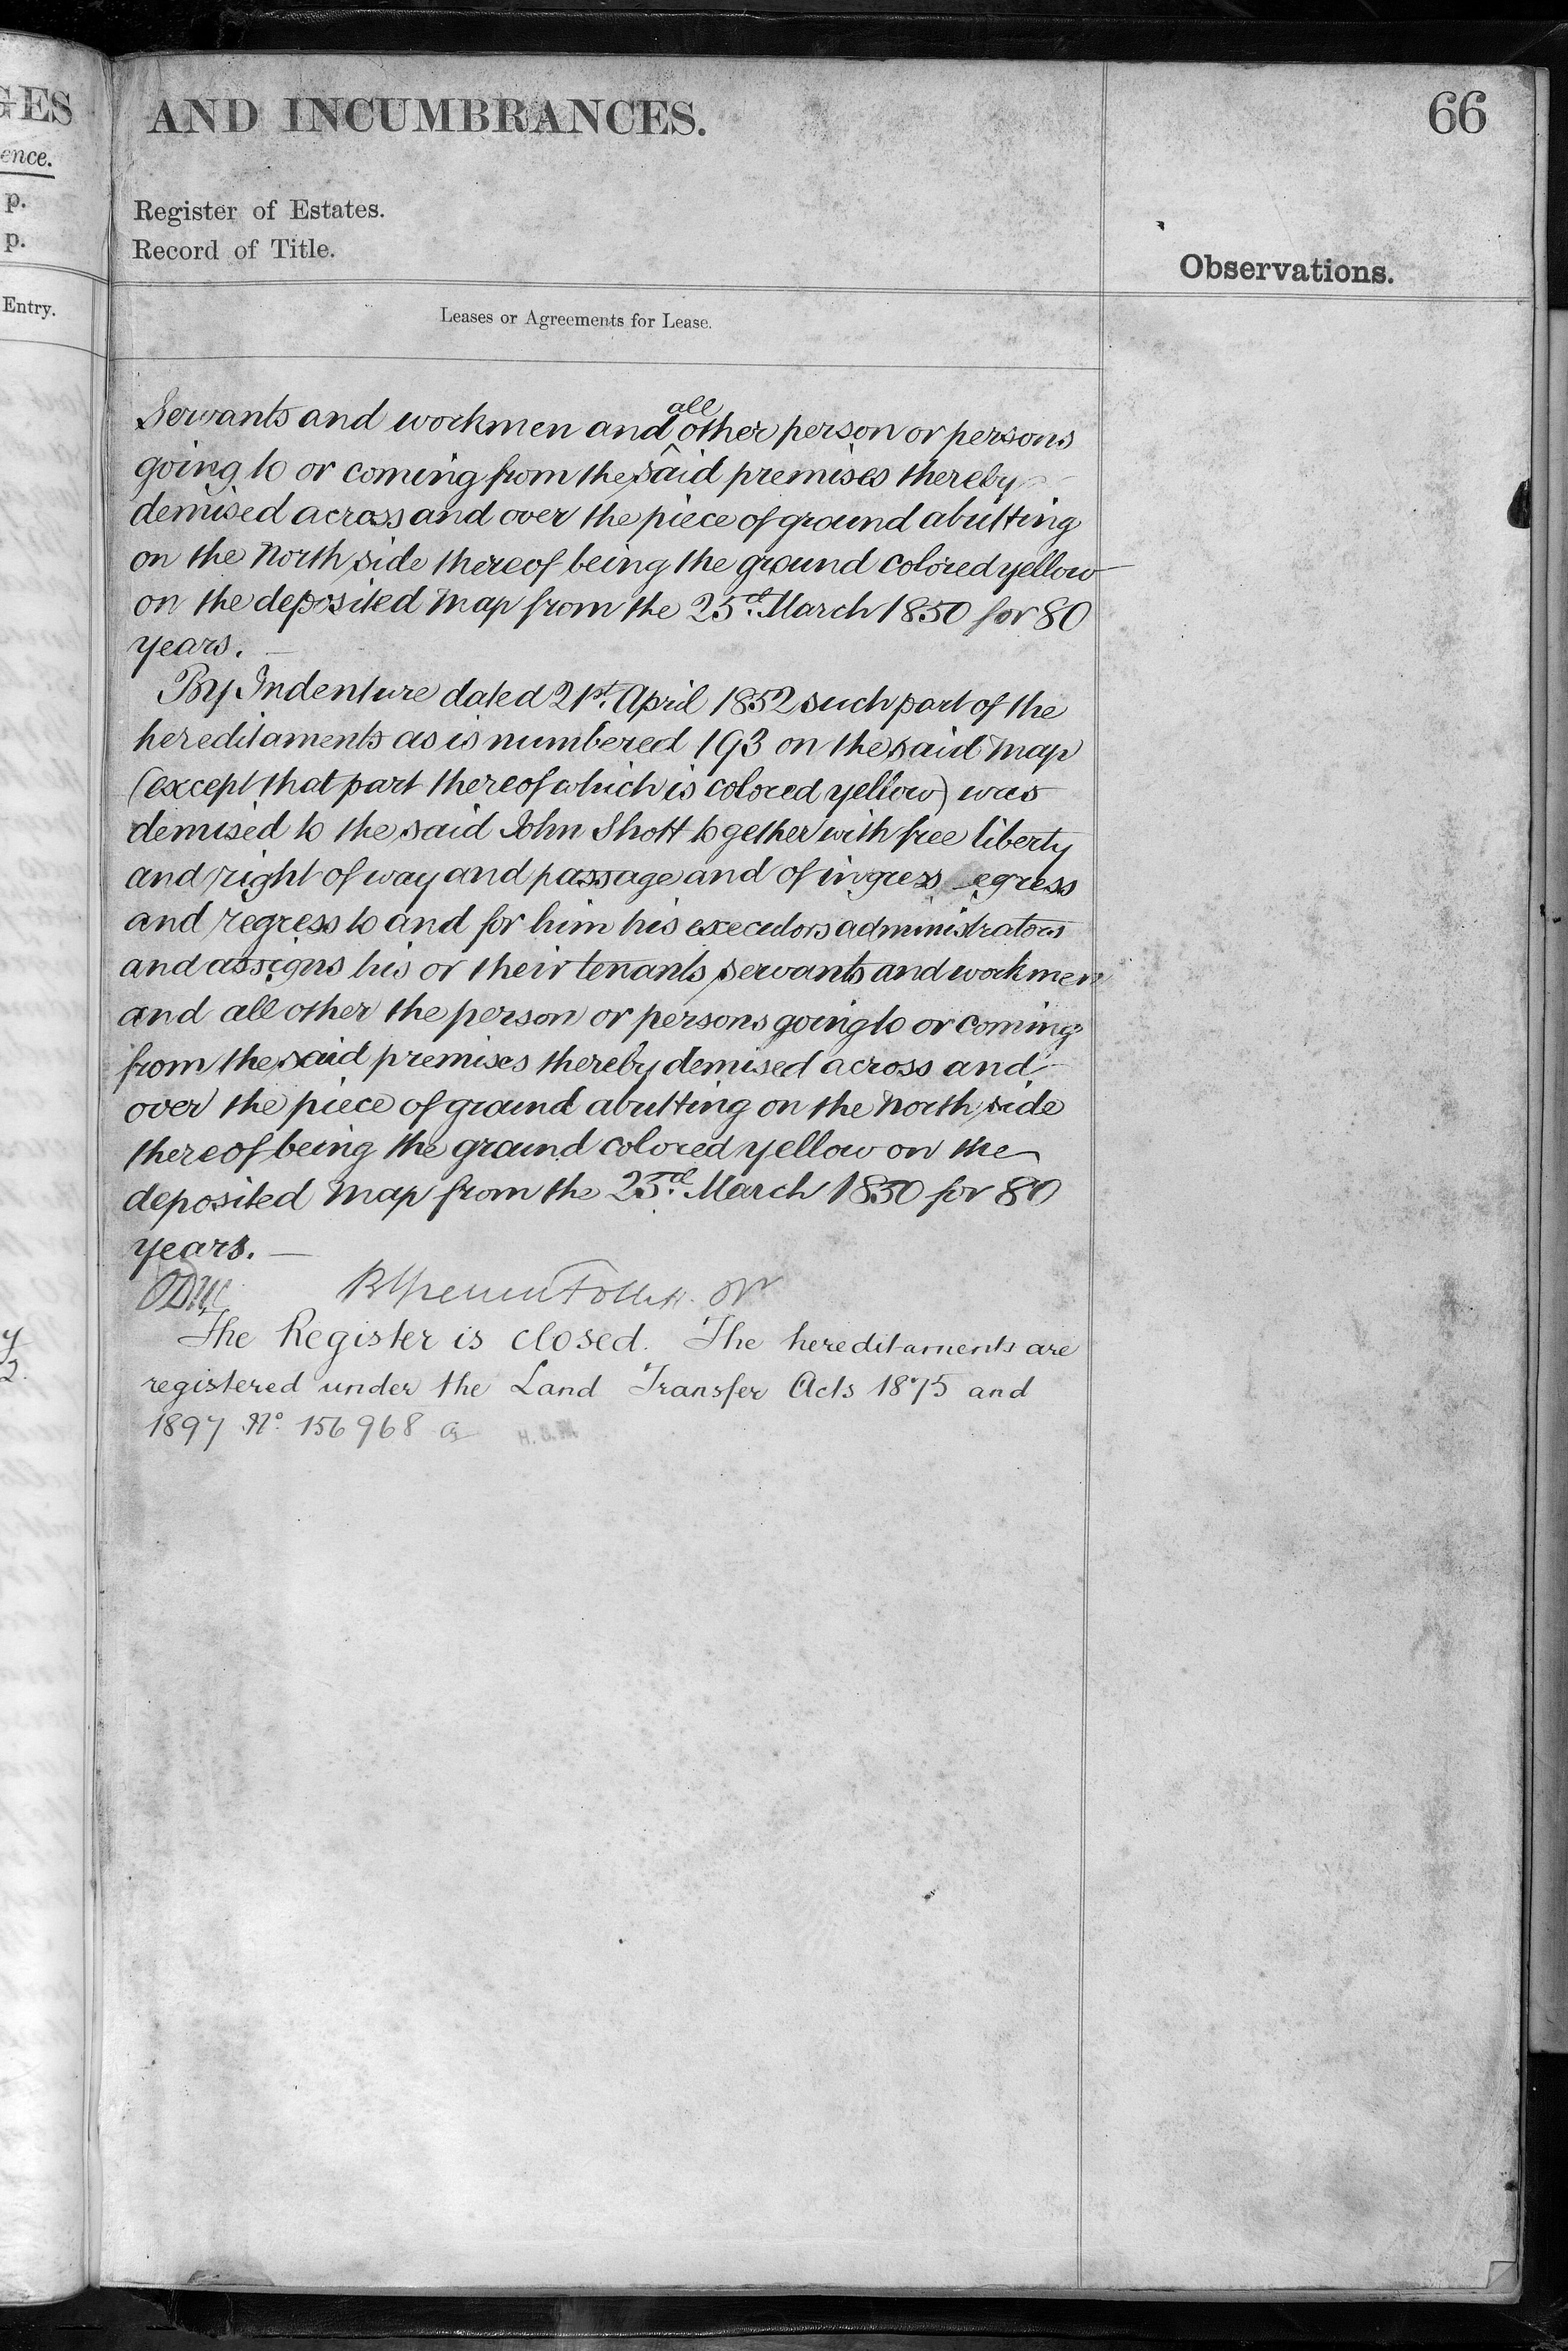 GES
AND INCUMBRANCES.
66
ence.
p.
Register of Estates.
p.
Record of Title.
Observations.
Entry.
Leases or Agreements for Lease.
Servants and workmen and all other person or persons
going to or coming from the said premises thereby
demised across and over the piece of ground abutting
on the North side thereof being the ground colored yellow
on the deposited Map from the 25th March 1850 for 80
years.
By Indenture dated 21st April 1852 such part of the
hereditaments as is numbered 193 on the said Map
(except that part thereof which is colored yellow) was
demised to the said John Shott together with free liberty
and right of way and passage and of ingress egress
and regress to and for him his executors administrators
and assigns his or their tenants servants and workmen
and all other the person or persons going to or coming
from the said premises thereby demised across and
over the piece of ground abutting on the North side
thereof being the ground colored yellow on the
deposited Map from the 25th March 1850 for 80
years.
The Register is closed. The hereditaments are
registered under the Land Transfer Acts 1875 and
1897 No. 156968